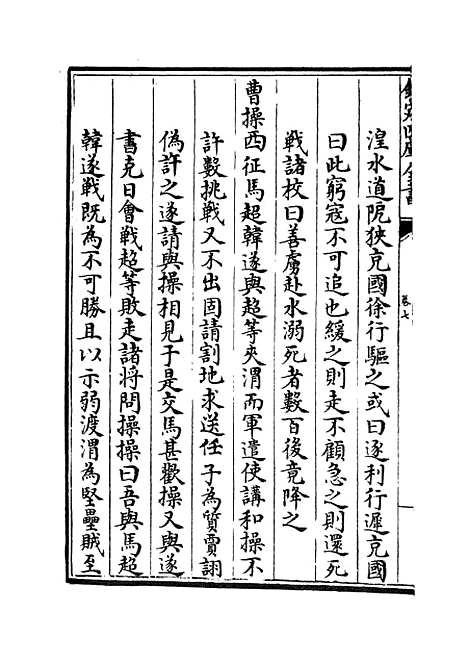 欽定四庫全書
卷七
湟水道阨狹充國徐行驅之或曰逐利行遲充國
曰此窮寇不可追也緩之則走不顧急之則還死
戰諸校曰善虜赴水溺死者數百後竟降之
曹操西征馬超韓遂與超等夾渭而軍遣使講和操不
許數挑戰又不出固請割地求送任子為質賈詡
偽許之遂請與操相見于是交馬甚歡操又與遂
書克日會戰超等敗走諸將問操操曰吾與馬超
韓遂戰既為不可勝且以示弱渡渭為堅壘賊至